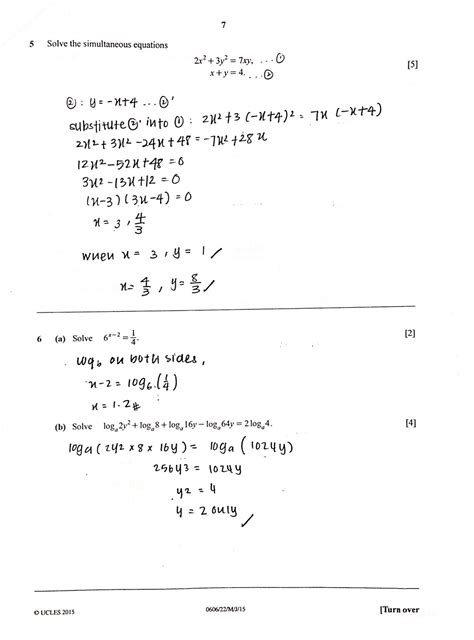 7
5 Solve the simultaneous equations
2x² + 3y² = 7xy, ... ①
x + y = 4. ... ②
[5]
②: y = -x+4 ... ②'
substitute ②' into ①: 2x² + 3 (-x+4)² = 7x (-x+4)
2x² + 3x² - 24x + 48 = -7x² + 28x
12x² - 52x + 48 = 0
3x² - 13x + 12 = 0
(x-3)(3x-4) = 0
x = 3, 4/3
when x = 3, y = 1
x = 4/3, y = 8/3
6 (a) Solve 6ˣ⁻² = 1/4. [2]
log₆ on both sides,
x-2 = log₆ (1/4)
x = 1.2#
(b) Solve logₐ2y² + logₐ8 + logₐ16y − logₐ64y = 2logₐ4. [4]
logₐ (2y² × 8 × 16y) = logₐ (1024y)
256y3 = 1024y
y2 = 4
y = 2 only
© UCLES 2015
0606/22/M/J/15
[Turn over